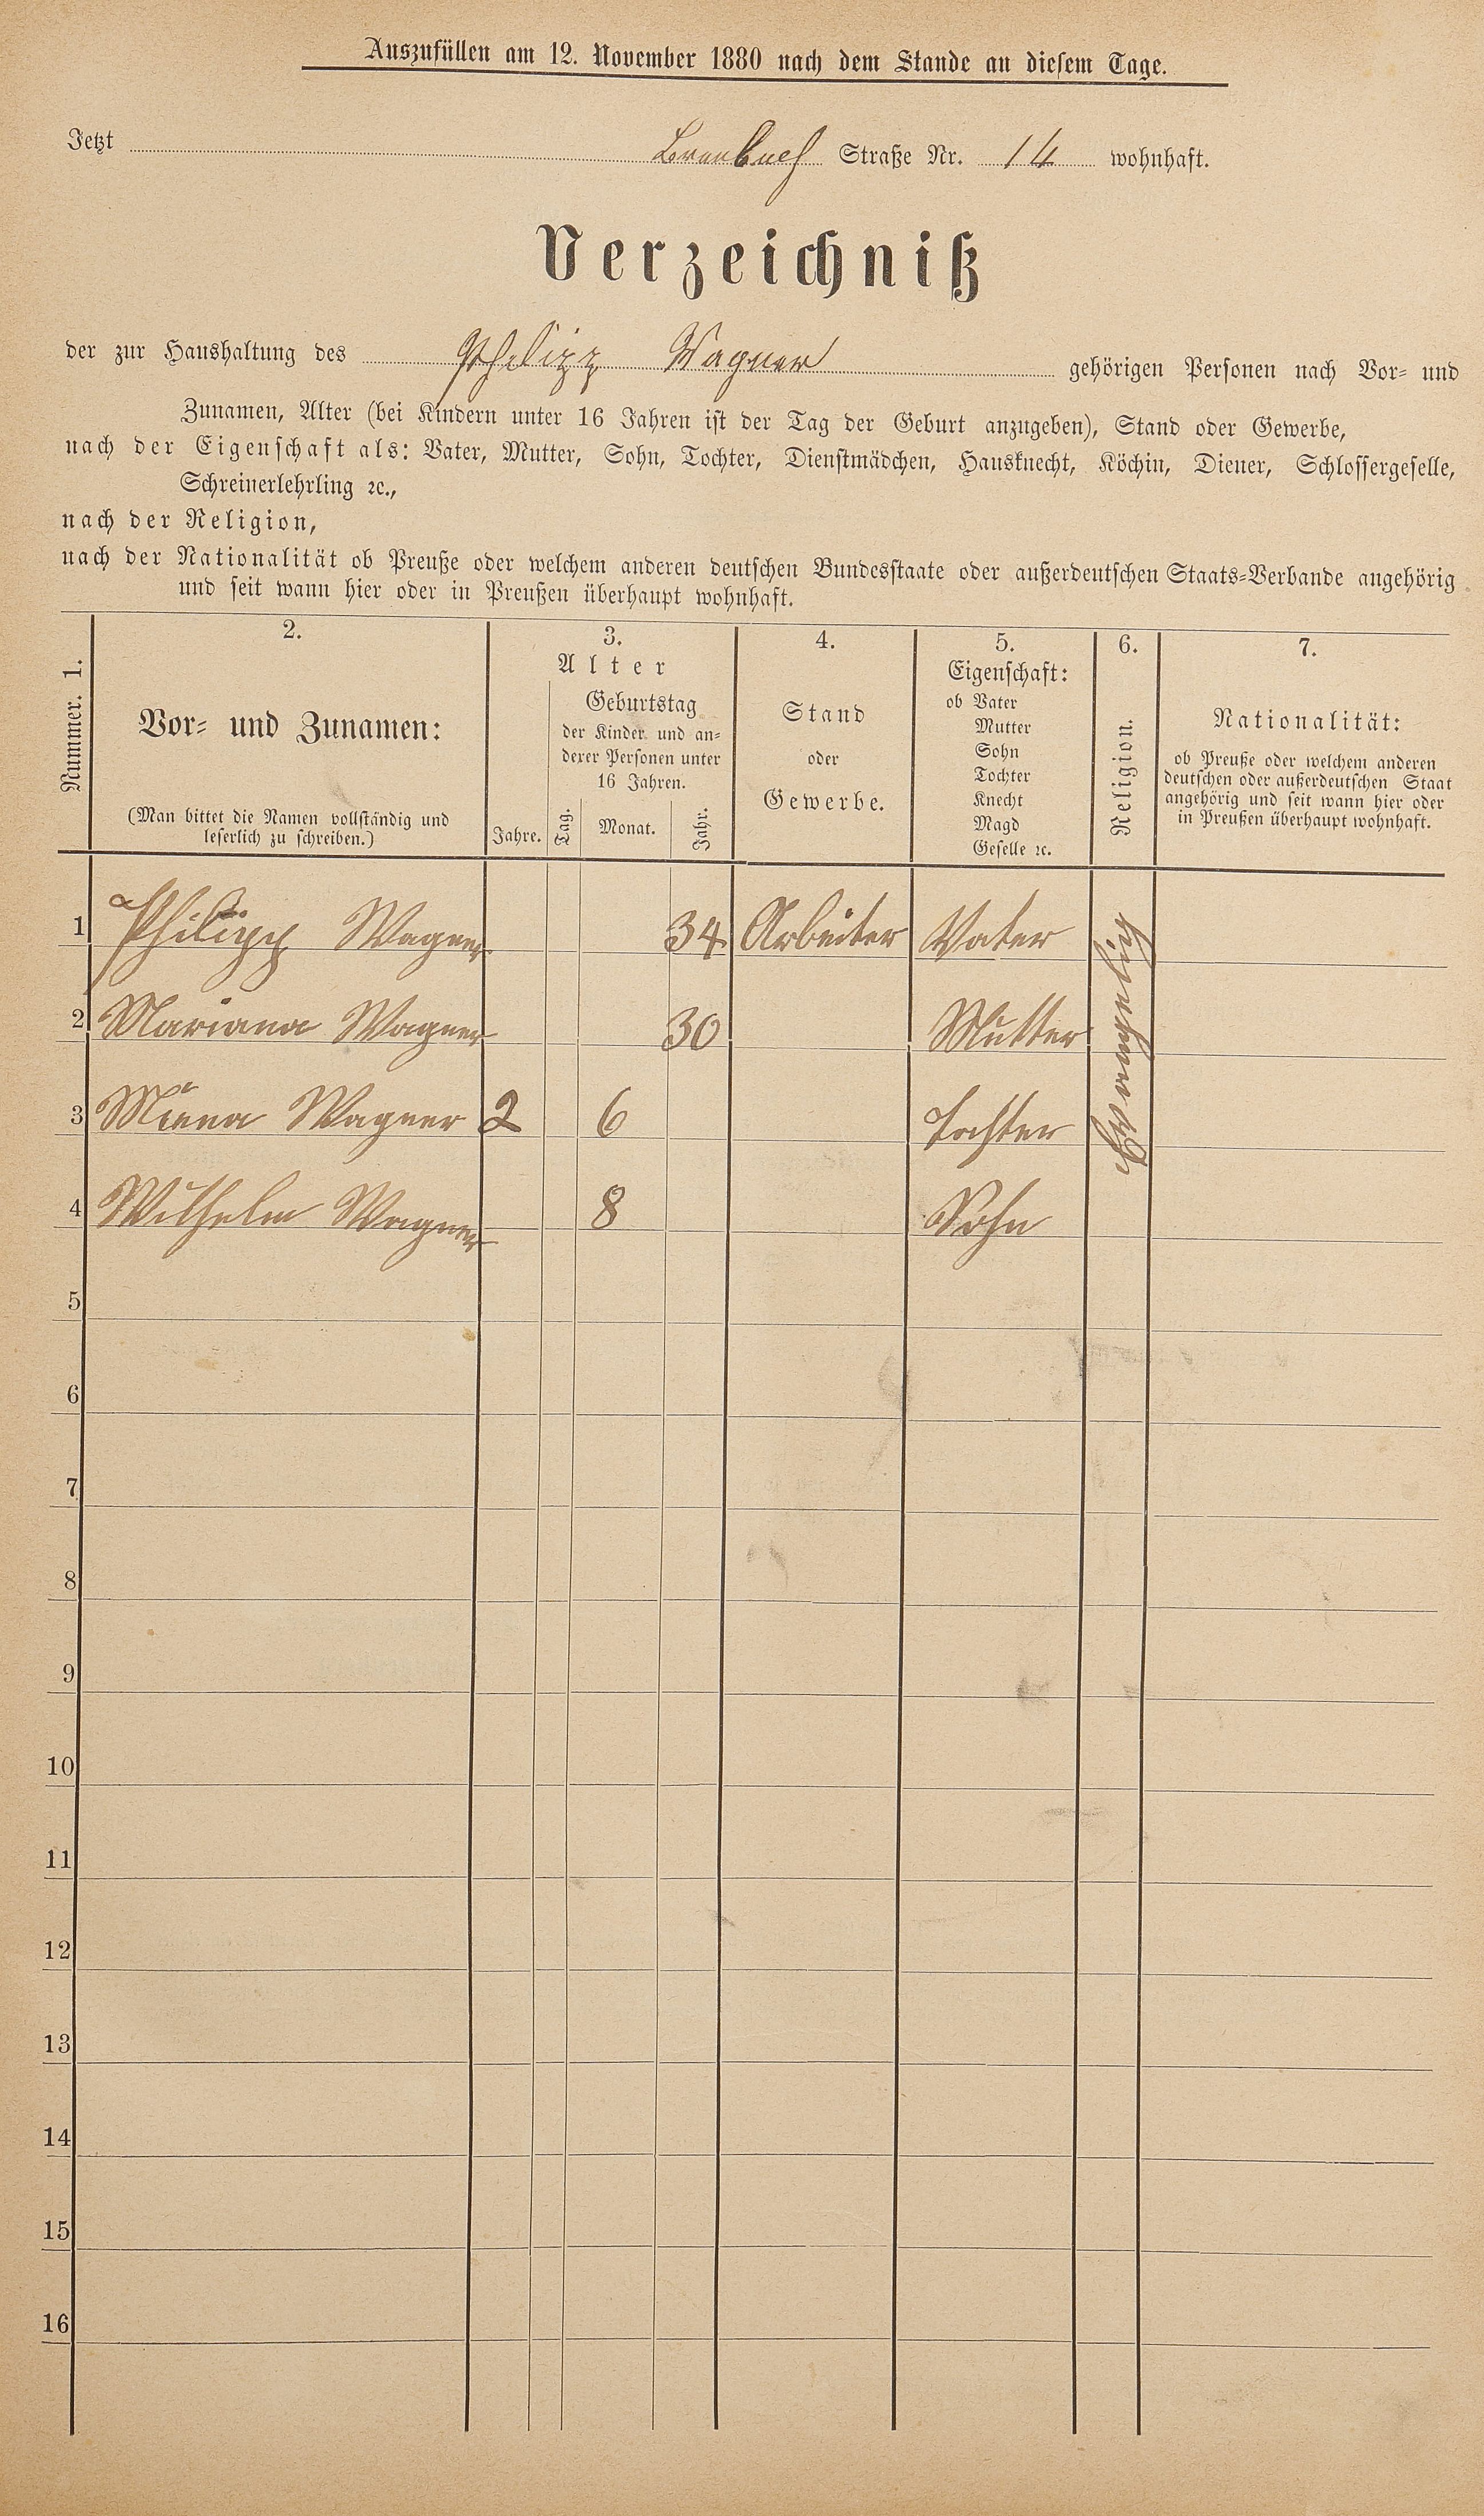 Auszufüllen am 12. November 1880 nach dem Stande an diesem Tage.
Jetzt Straße Nr. 14 wohnhaft.
Verzeichniß
der zur Haushaltung des Philipp Wagner gehörigen Personen nach Vor- und
Zunamen, Alter (bei Kindern unter 16 Jahren ist der Tag der Geburt anzugeben), Stand oder Gewerbe,
nach der Eigenschaft als: Vater, Mutter, Sohn, Tochter, Dienstmädchen, Hausknecht, Köchin, Diener, Schlossergeselle,
Schreinerlehrling ꝛc.,
nach der Religion,
nach der Nationalität ob Preuße oder welchem anderen deutschen Bundesstaate oder außerdeutschen Staats-Verbande angehörig
und seit wann hier oder in Preußen überhaupt wohnhaft.
Nummer. 1.
2.
Vor- und Zunamen:
(Man bittet die Namen vollständig und
leserlich zu schreiben.)
3.
Alter
Jahre.
Geburtstag
der Kinder und an-
derer Personen unter
16 Jahren.
Tag. Monat. Jahr.
4.
Stand
oder
Gewerbe.
5.
Eigenschaft:
ob Vater
Mutter
Sohn
Tochter
Knecht
Magd
Geselle ꝛc.
6.
Religion.
7.
Nationalität:
ob Preuße oder welchem anderen
deutschen oder außerdeutschen Staat
angehörig und seit wann hier oder
in Preußen überhaupt wohnhaft.
1 Philipp Wagner 34 Arbeiter Vater
2 Mariana Wagner 30 Mutter
3 Minna Wagner 2 6 Tochter
4 Wilhelm Wagner 8 Sohn
5
6
7
8
9
10
11
12
13
14
15
16